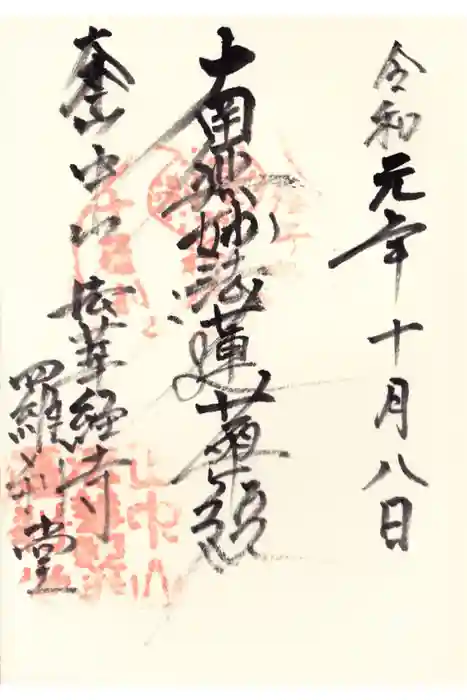 令和元年十月八日
南無妙法蓮華経
奉 大本山中山法華経寺
羅刹堂